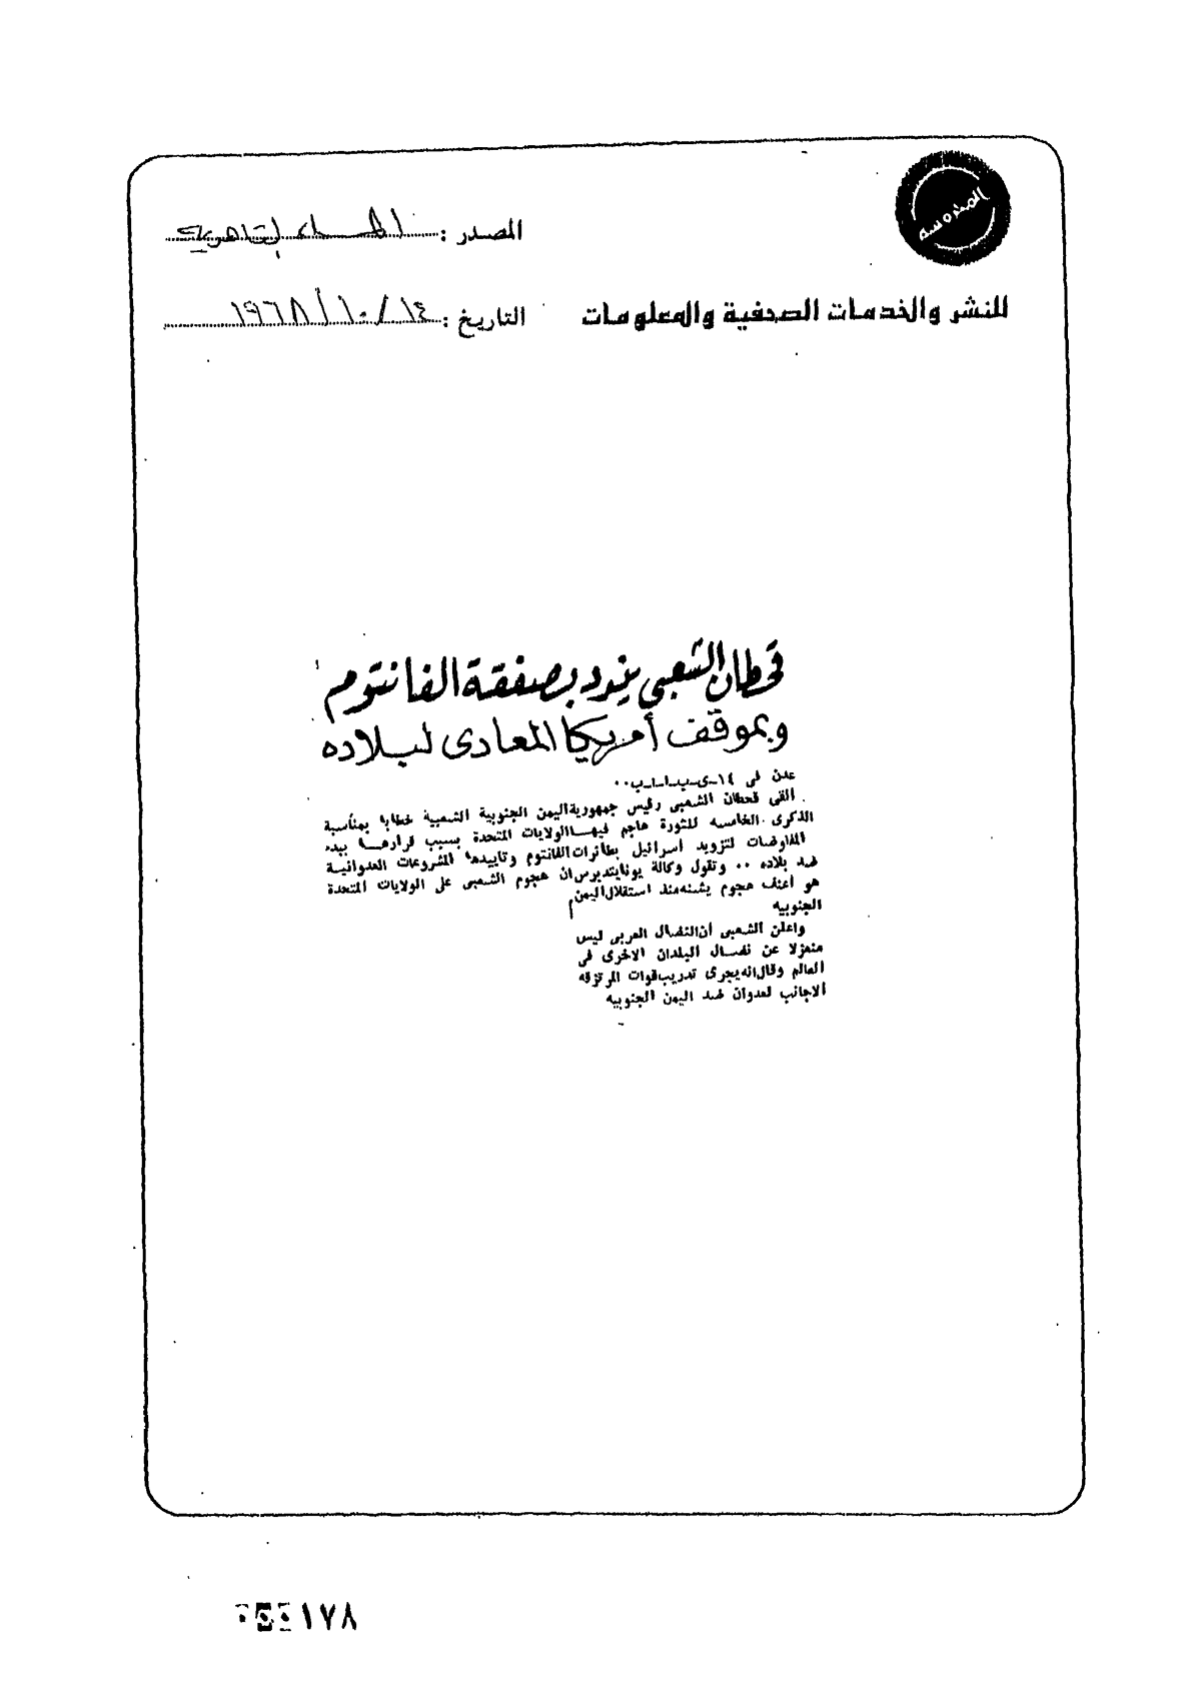 المحروسة
للنشر والخدمات الصحفية والمعلومات
المصدر : المساء القاهرية
التاريخ : ١٤/١٠/١٩٦٨
قحطان الشعبي يندد بصفقة الفانتوم
وبموقف أمريكا المعادى لبلاده
عدن فى ١٤ـىـبـاـبـ..
القى قحطان الشعبى رئيس جمهورية اليمن الجنوبية الشعبية خطابا بمناسبة
الذكرى الخامسه للثورة هاجم فيها الولايات المتحدة بسبب قرارها ببدء
المفاوضات لتزويد اسرائيل بطائرات الفانتوم وتاييدها المشروعات العدوانية
ضد بلاده .. وتقول وكالة يونايتدبرس ان هجوم الشعبى على الولايات المتحدة
هو اعنف هجوم يشنه منذ استقلال اليمن
الجنوبيه
واعلن الشعبى أن النضال العربى ليس
منعزلا عن نضال البلدان الاخرى فى
العالم وقال انه يجرى تدريب قوات المرتزقه
الاجانب لعدوان ضد اليمن الجنوبيه
١٧٨